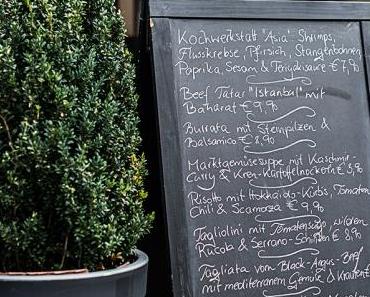 Kochwerkstatt "Asia" Shrimps,
Flusskrebse, Pfirsich, Stangenbohnen
Paprika, Sesam & Teriyakisauce € 7,90
Beef Tatar "Istanbal" mit
Baharat € 9,90
Burrata mit Steinpilzen &
Balsamico € 8,90
Marktgemüsesuppe mit Kaschmir
Curry & Kren-Kartoffelnockerl € 5,80
Risotto mit Hokkaido-Kürbis, Tomaten
Chili & Scamorza € 9,90
Tagliolini mit Tomatensugo, wildem
Rucola & Serrano-Schinken € 8,90
Tagliata von Black-Angus-Beef
mit mediterranem Gemüse & Kräuter